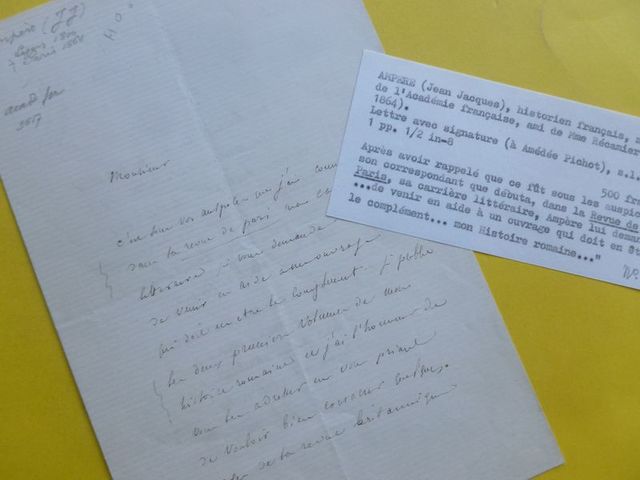 mpère (J J)
Lyon 1800
† Paris 1864
acad fse
Monsieur
c'est sous vos auspices que j'ai
dans la revue de paris mon
littéraire je vous demande
de venir en aide à un ouvrage
qui doit en être le complément. je publie
les deux premiers volumes de mon
histoire romaine et j'ai l'honneur de
vous les adresser en vous priant
de vouloir bien consacrer quelques
de la revue britannique
AMPERE (Jean Jacques), historien français,
de l'Académie française, ami de Mme Récamier
1864).
Lettre avec signature (à Amédée Pichot), s.l.
1 pp. 1/2 in-8
500 fra
Après avoir rappelé que ce fût sous les auspi
son correspondant que débuta, dans la Revue de
Paris, sa carrière littéraire, Ampère lui dema
...de venir en aide à un ouvrage qui doit en êt
le complément... mon Histoire romaine..."